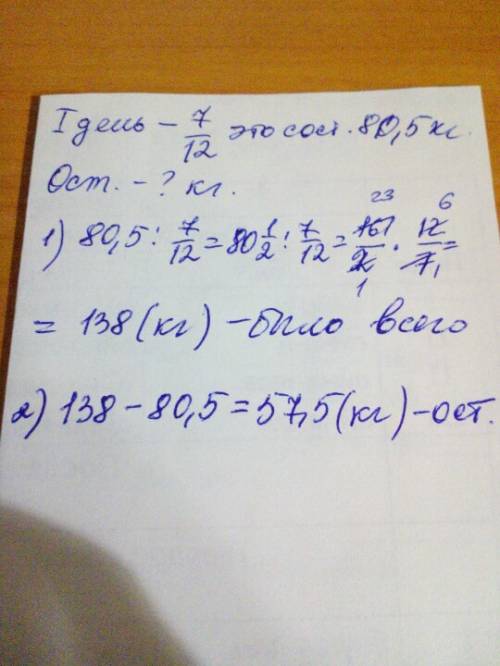 I день – 7/12 это сост. 80,5 кг.
Ост. – ? кг.
1) 80,5 : 7/12 = 80 1/2 : 7/12 = 161/2 · 12/7 = 23 6 1 1
= 138 (кг) – было всего
2) 138 – 80,5 = 57,5 (кг) – ост.